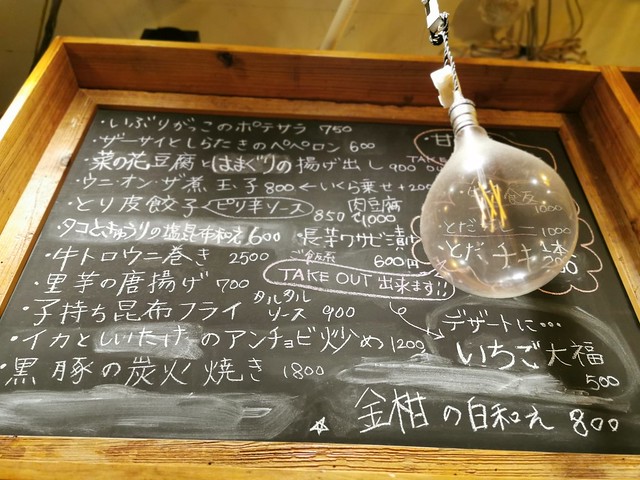 ・いぶりがっこのポテサラ 750
・ザーサイとしらたきのペペロン 600
・菜の花豆腐とはまぐりの揚げ出し 900
・ウニオンザ煮玉子 800 ←いくら乗せ+200
・とり皮餃子 ピリ辛ソース 850
肉豆腐 1000
・タコときゅうりの塩昆布和え 600
・長芋ワサビ漬け 600円
・牛トロウニ巻き 2500
・里芋の唐揚げ 700
TAKE OUT 出来ます!!
・子持ち昆布フライ タルタルソース 900
・イカとしいたけのアンチョビ炒め 1200
・黒豚の炭火焼き 1800
・甘
TAKE
1000
1000
・とだ チキ 1本
デザートに…
いちご大福
500
☆ 金柑の白和え 800